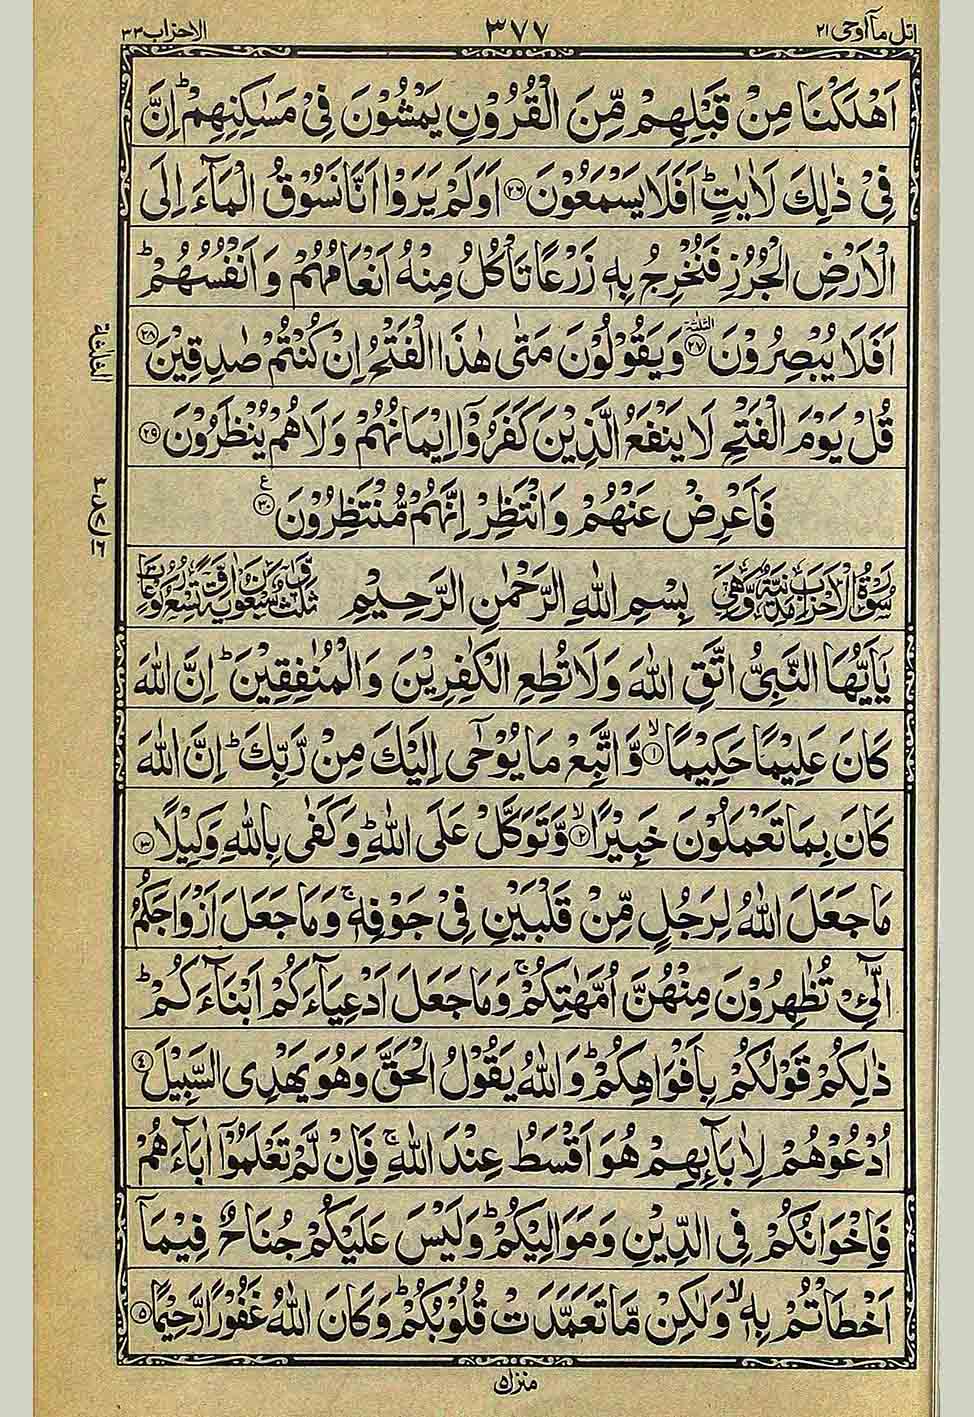 اتل ماۤ اوحی ۲۱
۳۷۷
الاحزاب ۳۳
اَهْلَكْنَا مِنْ قَبْلِهِمْ مِّنَ الْقُرُوْنِ يَمْشُوْنَ فِىْ مَسٰكِنِهِمْ ؕ اِنَّ
فِىْ ذٰلِكَ لَاٰيٰتٍ ؕ اَفَلَا يَسْمَعُوْنَ ۲۶ اَوَلَمْ يَرَوْا اَنَّا نَسُوْقُ الْمَآءَ اِلَى
الْاَرْضِ الْجُرُزِ فَنُخْرِجُ بِهٖ زَرْعًا تَاْكُلُ مِنْهُ اَنْعَامُهُمْ وَاَنْفُسُهُمْ ؕ
اَفَلَا يُبْصِرُوْنَ ۲۷ وَيَقُوْلُوْنَ مَتٰى هٰذَا الْفَتْحُ اِنْ كُنْتُمْ صٰدِقِيْنَ ۲۸
الثلثة
قُلْ يَوْمَ الْفَتْحِ لَا يَنْفَعُ الَّذِيْنَ كَفَرُوْۤا اِيْمَانُهُمْ وَلَا هُمْ يُنْظَرُوْنَ ۲۹
فَاَعْرِضْ عَنْهُمْ وَانْتَظِرْ اِنَّهُمْ مُّنْتَظِرُوْنَ ۳۰ ع
سُوْرَةُ الْاَحْزَابِ مَدَنِيَّةٌ وَّهِىَ بِسْمِ اللهِ الرَّحْمٰنِ الرَّحِيْمِ ثَلٰثٌ وَّسَبْعُوْنَ اٰيَةً وَّتِسْعُ رُكُوْعَاتٍ
يٰۤاَيُّهَا النَّبِىُّ اتَّقِ اللهَ وَلَا تُطِعِ الْكٰفِرِيْنَ وَالْمُنٰفِقِيْنَ ؕ اِنَّ اللهَ
كَانَ عَلِيْمًا حَكِيْمًا ۙ ۱ وَّاتَّبِعْ مَا يُوْحٰۤى اِلَيْكَ مِنْ رَّبِّكَ ؕ اِنَّ اللهَ
كَانَ بِمَا تَعْمَلُوْنَ خَبِيْرًا ۙ ۲ وَّتَوَكَّلْ عَلَى اللهِ ؕ وَكَفٰى بِاللهِ وَكِيْلًا ۳
مَا جَعَلَ اللهُ لِرَجُلٍ مِّنْ قَلْبَيْنِ فِىْ جَوْفِهٖ ۚ وَمَا جَعَلَ اَزْوَاجَكُمُ
الّٰٓـئِْ تُظٰهِرُوْنَ مِنْهُنَّ اُمَّهٰتِكُمْ ۚ وَمَا جَعَلَ اَدْعِيَآءَكُمْ اَبْنَآءَكُمْ ؕ
ذٰلِكُمْ قَوْلُكُمْ بِاَفْوَاهِكُمْ ؕ وَاللهُ يَقُوْلُ الْحَقَّ وَهُوَ يَهْدِى السَّبِيْلَ ۴
اُدْعُوْهُمْ لِاٰبَآئِهِمْ هُوَ اَقْسَطُ عِنْدَ اللهِ ۚ فَاِنْ لَّمْ تَعْلَمُوْۤا اٰبَآءَهُمْ
فَاِخْوَانُكُمْ فِى الدِّيْنِ وَمَوَالِيْكُمْ ؕ وَلَيْسَ عَلَيْكُمْ جُنَاحٌ فِيْمَاۤ
اَخْطَاْتُمْ بِهٖ ۙ وَلٰكِنْ مَّا تَعَمَّدَتْ قُلُوْبُكُمْ ؕ وَكَانَ اللهُ غَفُوْرًا رَّحِيْمًا ۵
منزل ۵